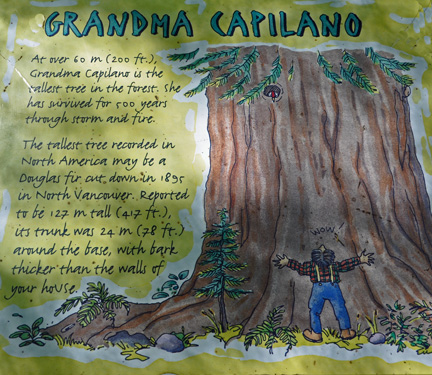 GRANDMA CAPILANO
At over 60 m (200 ft.),
Grandma Capilano is the
tallest tree in the forest. She
has survived for 500 years
through storm and fire.
The tallest tree recorded in
North America may be a
Douglas fir cut down in 1895
in North Vancouver. Reported
to be 127 m tall (417 ft.),
its trunk was 24 m (78 ft.)
around the base, with bark
thicker than the walls of
your house.
WOW!